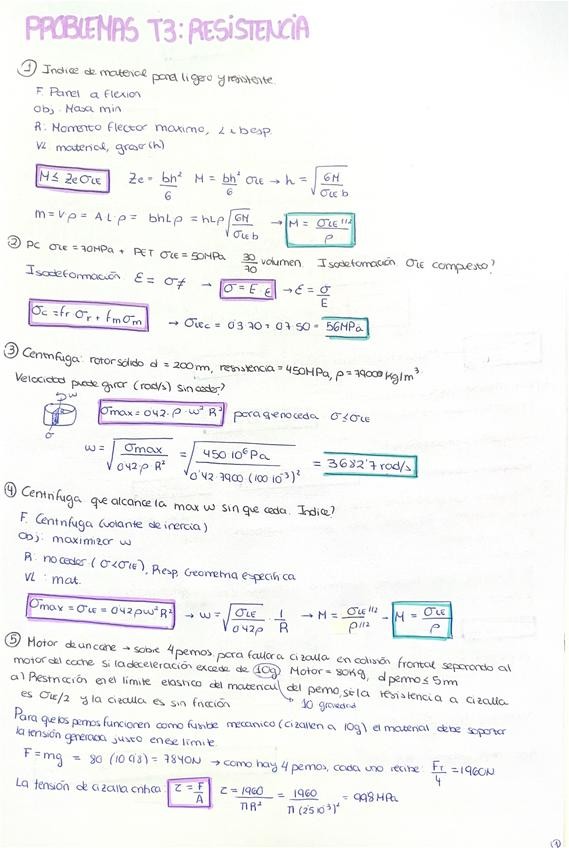 PROBLEMAS T3: RESISTENCIA
① Indice de material panel ligero y resistente.
F. Panel a flexion
Obj. Masa min
R: Momento flector maximo, L i b esp.
VL: material, grosor (h)
M ≤ Ze σLE  Ze = bh²/6  M = bh²/6 σLE → h = √(6M/σLE b)
m = Vρ = A L·ρ = bhLρ = hLρ √(6M/σLE b) → M = σLE^1/2/ρ
② PC σLE = 70MPa + PET σLE = 50MPa 30/70 volumen. Isodeformación σLE compuesto?
Isodeformación ε = σ≠ → σ = E ε → ε = σ/E
σc = fr σr + fm σm → σLEC = 0'3 70 + 0'7 50 = 56MPa
③ Centrifuga: rotor sólido d = 200mm, resistencia = 450MPa, ρ = 7900 kg/m³
Velocidad puede girar (rad/s) sin ceder?
w
σ
σmax = 0'42·ρ·w² R² para que no ceda σ ≤ σLE
w = √(σmax/0'42ρ·R²) = √(450 10⁶ Pa/0'42·7900·(100 10⁻³)²) = 3682'7 rad/s
④ Centrifuga que alcance la max w sin que ceda. Indice?
F. Centrifuga (volante de inercia)
Obj: maximizar w
R: no ceder (σ<σLE), Resp. Geometria especifica
VL: mat.
σmax = σLE = 0'42ρw²R² → w = √(σLE/0'42ρ) · 1/R → M = σLE^1/2/ρ^1/2 - M = σLE/ρ
⑤ Motor de un coche → sobre 4 pernos para fallar a cizalla en colisión frontal separando al
motor del coche si la deceleración excede de 10g Motor = 80Kg, d pernos = 5m
a) Restricción en el límite elastico del material del perno, si la resistencia a cizalla
es σLE/2 y la cizalla es sin fricción
↳ 10 gravedad
Para que los pernos funcionen como fusible mecanico (cizallen a 10g) el material debe soportar
la tensión generada justo en ese límite.
F = mg = 80 (10 9'8) = 7840N → como hay 4 pernos, cada uno recibe Ft/4 = 1960N
La tensión de cizalla critica: τ = F/A  τ = 1960/πR² = 1960/π(2'5 10⁻³)² = 99'8 MPa
①